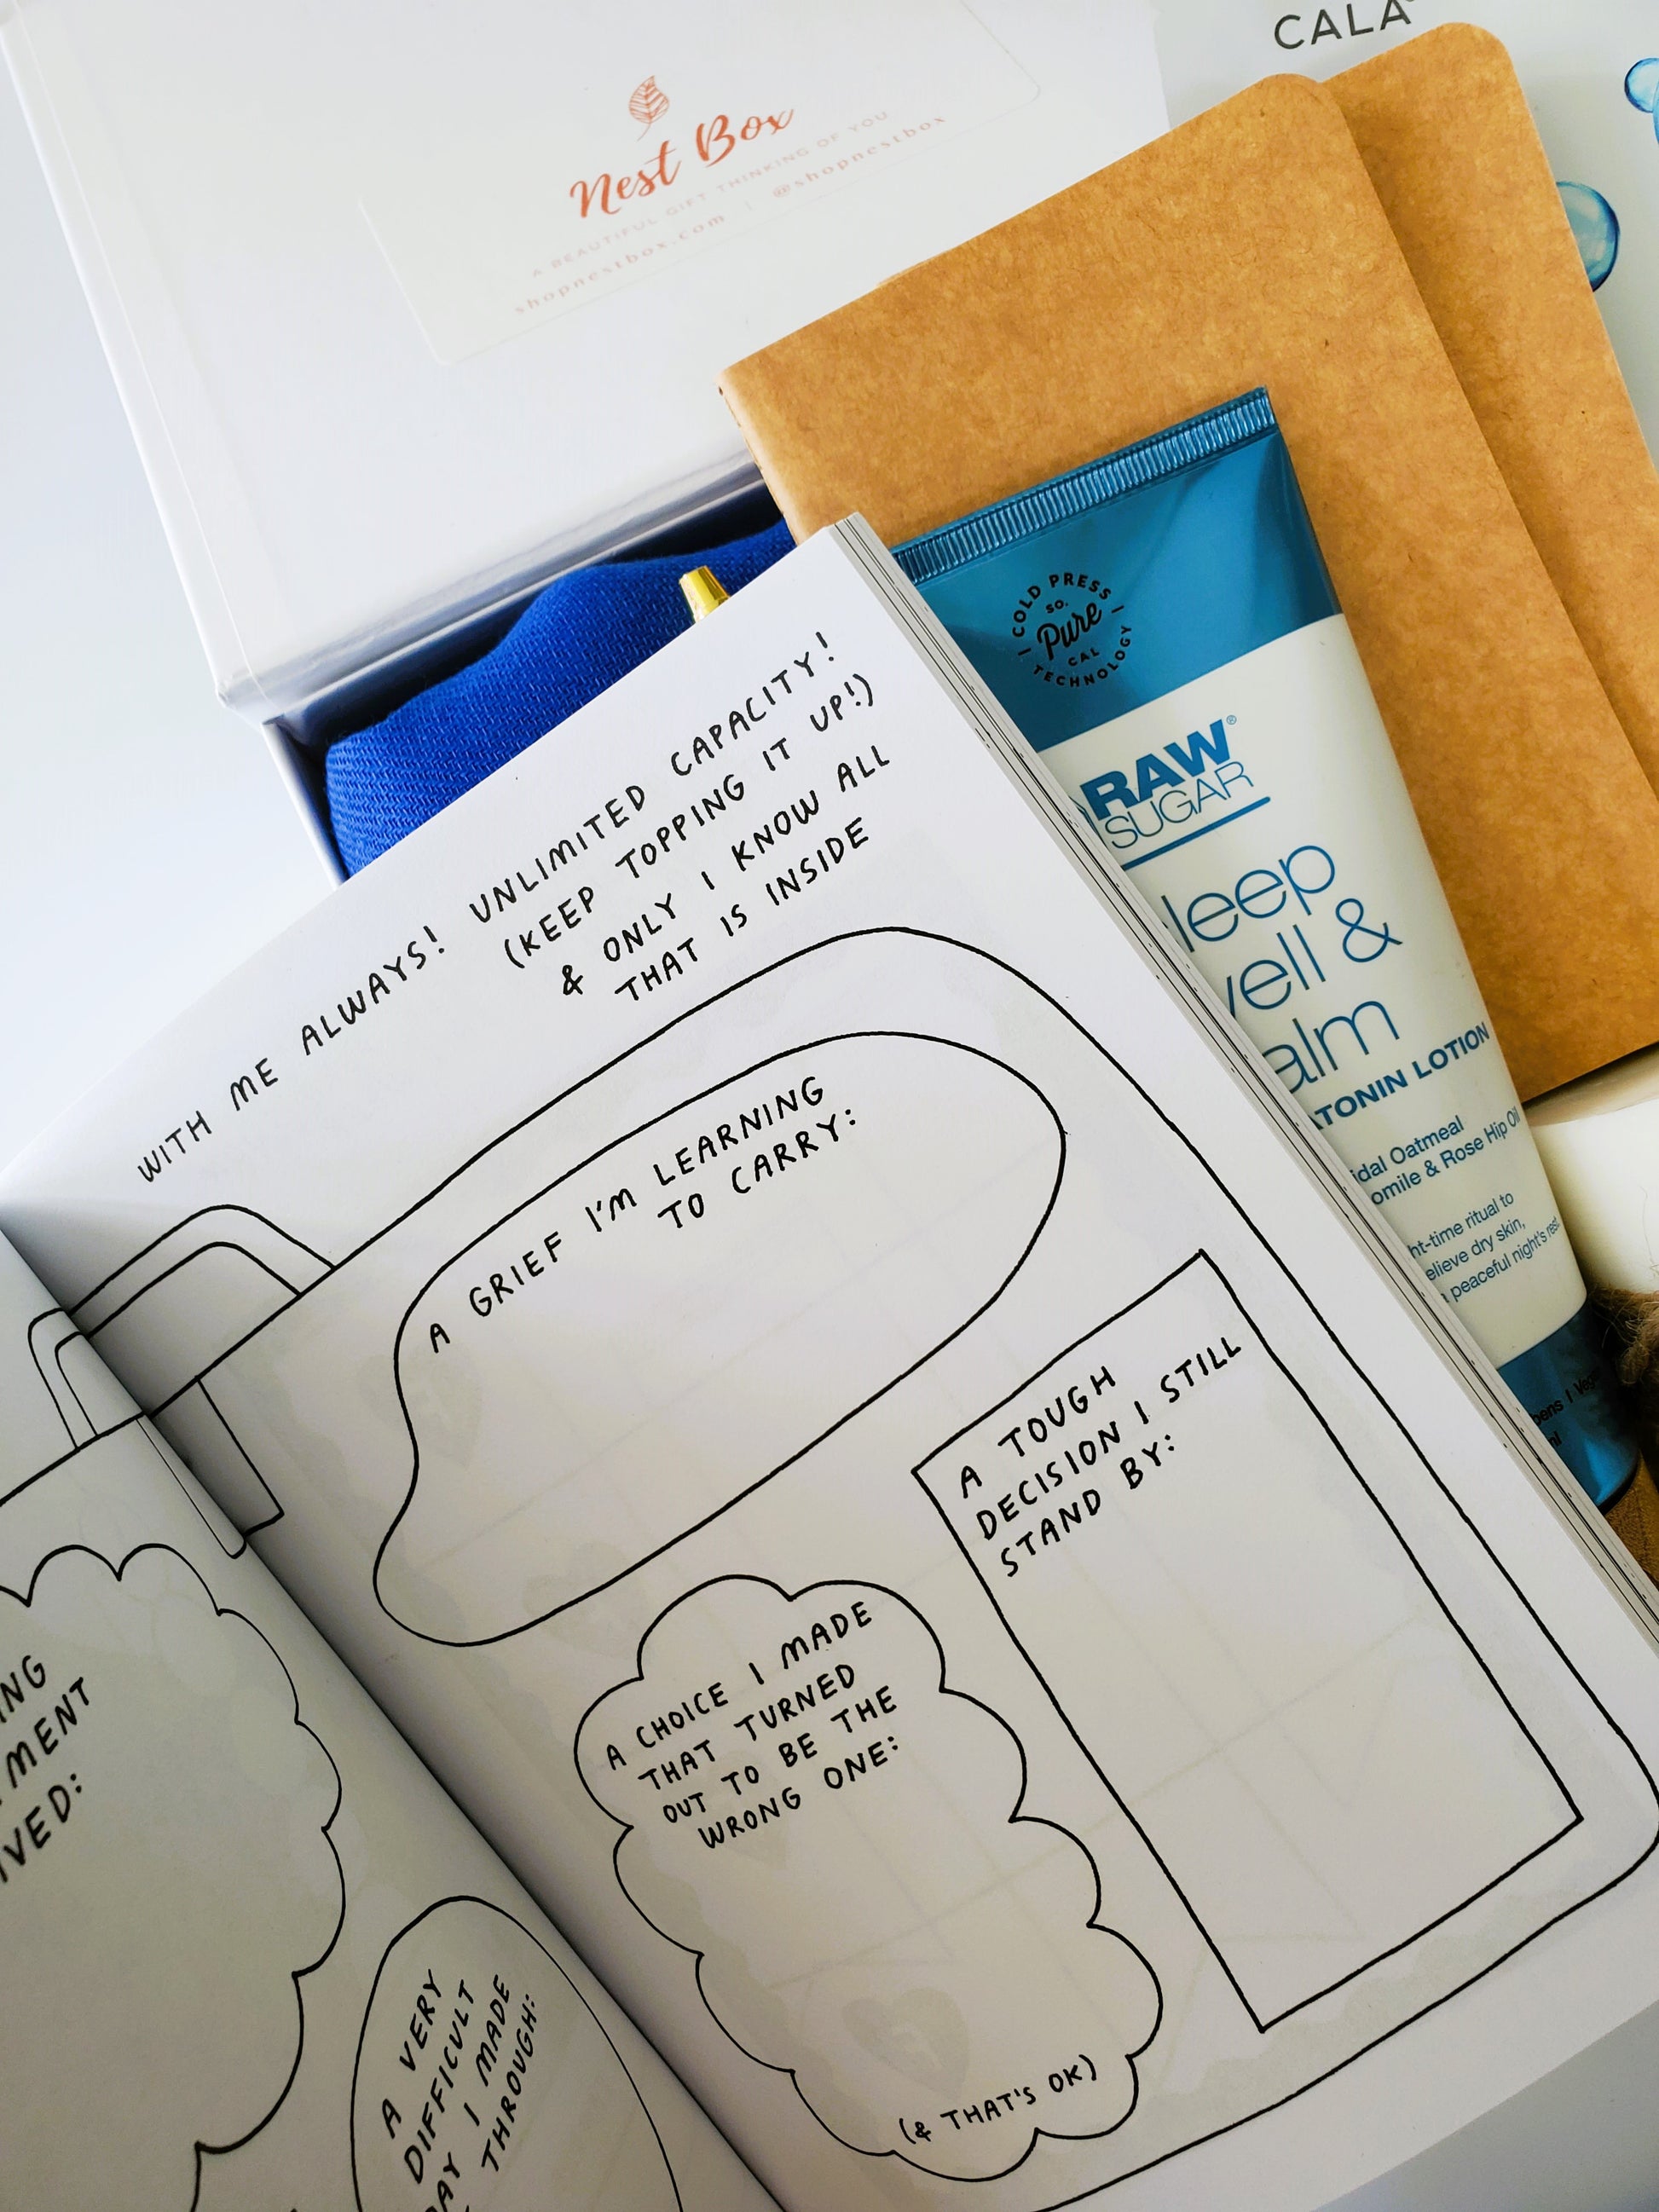 CALA
Nest Box
A BEAUTIFUL GIFT THINKING OF YOU
shopnestbox.com | @shopnestbox
COLD PRESS
SO.
Pure
CAL
TECHNOLOGY
RAW®
SUGAR
leep
ell &
alm
TONIN LOTION
idal Oatmeal
omile & Rose Hip Oil
ht-time ritual to
elieve dry skin,
a peaceful night's rest
WITH ME ALWAYS! UNLIMITED CAPACITY!
(KEEP TOPPING IT UP!)
& ONLY I KNOW ALL
THAT IS INSIDE
A GRIEF I'M LEARNING
TO CARRY:
A TOUGH
DECISION I STILL
STAND BY:
A CHOICE I MADE
THAT TURNED
OUT TO BE THE
WRONG ONE:
(& THAT'S OK)
NG
MENT
VED:
A VERY
DIFFICULT
AY I MADE
THROUGH: